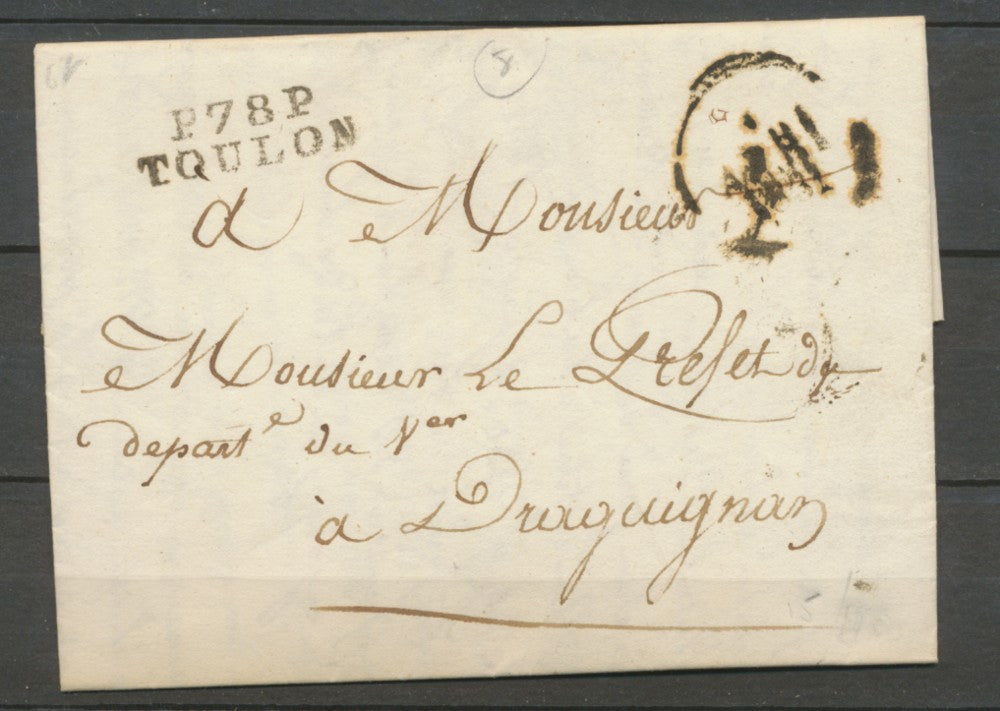 8
P78P
TOULON
a Monsieur
Monsieur Le Prefet du
depart.e du Var
à Draguignan
15